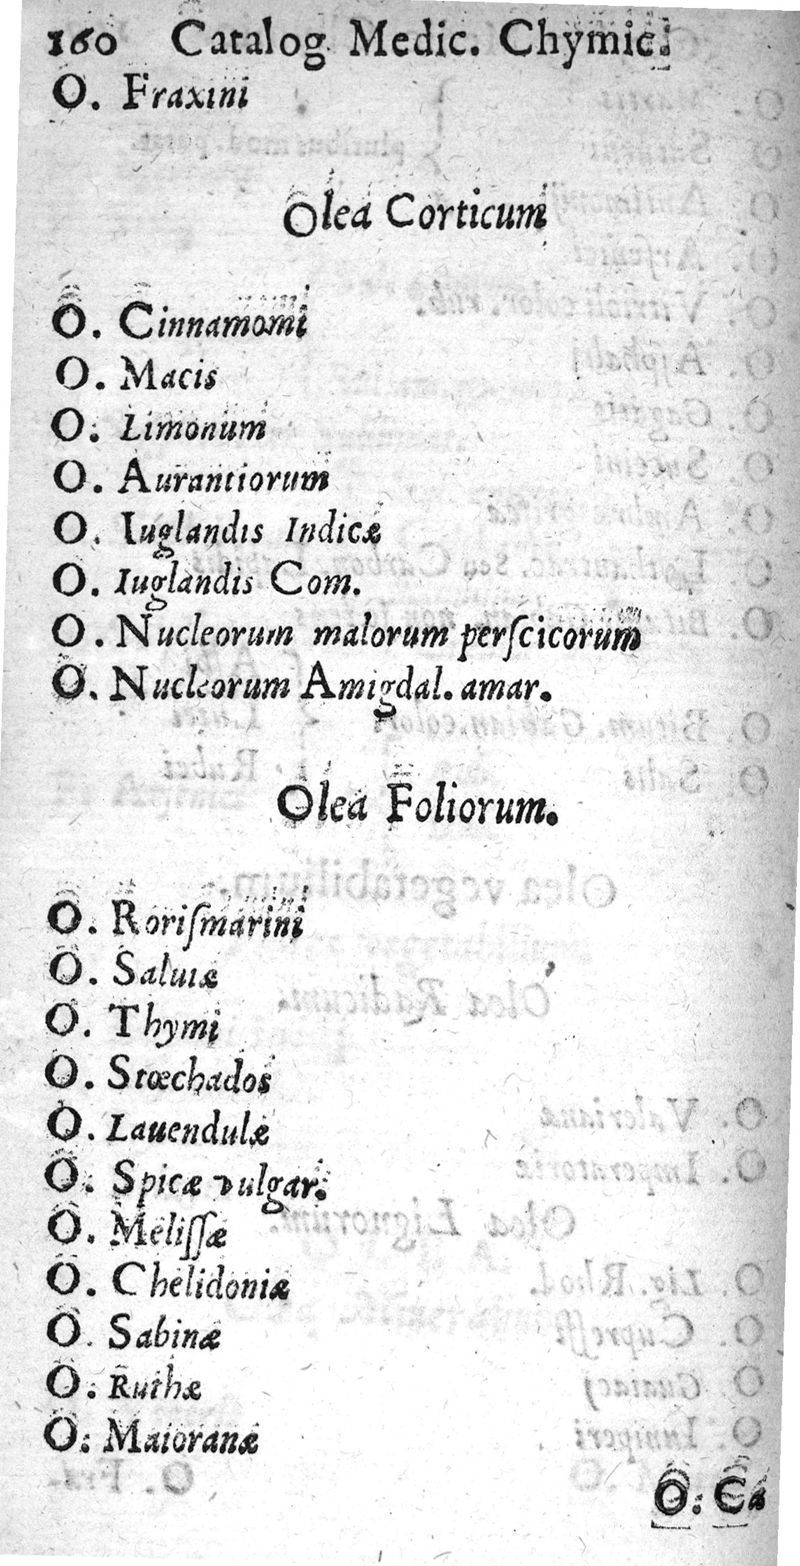 160 Catalog Medic. Chymic.
O. Fraxini
Olea Corticum
O. Cinnamomi
O. Macis
O. Limonum
O. Aurantiorum
O. Iuglandis Indicæ
O. Iuglandis Com.
O. Nucleorum malorum perſcicorum
O. Nucleorum Amigdal. amar.
Olea Foliorum.
O. Roriſmarini
O. Saluiæ
O. Thymi
O. Stœchados
O. Lauendulæ
O. Spicæ vulgar.
O. Meliſſæ
O. Chelidoniæ
O. Sabinæ
O. Ruthæ
O. Maioranæ
O. Ca